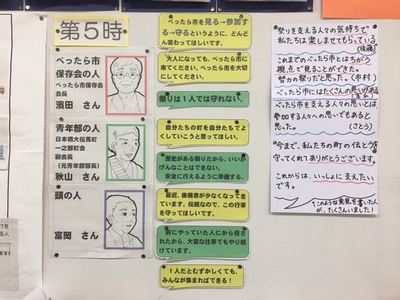 第5時
べったら市
保存会の人
べったら市保存会
会長
濱田 さん
青年部の人
日本橋大伝馬町
一之部町会
副会長
(元青年部部長)
秋山 さん
頭の人
富岡 さん
べったら市を見る→参加す
る→守るというように、どんど
ん変わってほしいです。
大人になっても、べったら市
に来てください。べったら市を大
切にしてください。
祭りは1人では守れない。
自分たちの町を自分たちでよ
くしていこうと思ってほしい。
歴史がある祭りだから、いいか
げんなことはできない。
安全に行えるように準備する。
最近、後継者が少なくなって
きています。伝統なので、この行事
を守ってほしいです。
前にやっていた人にから任さ
れたから、大変な仕事でもやり続
けています。
1人だとむずかしくても、
みんなが集まればできる!
祭りを支える人々の気持ちで
私たちは楽しませてもらっている
(後藤)
これまでのべったら市とはちがう
視点で見ることができた。
努力の祭りだと思った。(中村)
べったら市にはたくさんの思いがある
べったら市を支える人々の思いとは
参加する人々への思いでもあると
思った。 (さとう)
今まで、私たちの町の伝とうを
守ってくれてありがとうございます。
これからは、いっしょに支えたい
です。
↑このような発見を書いた人
が、たくさんいました!